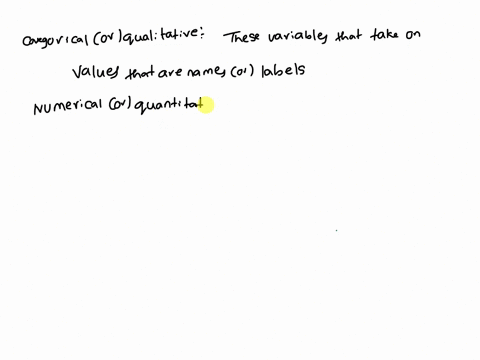 Categorical (or) qualitative: These variables that take on
values that are names (or) labels
Numerical (or) quantitat